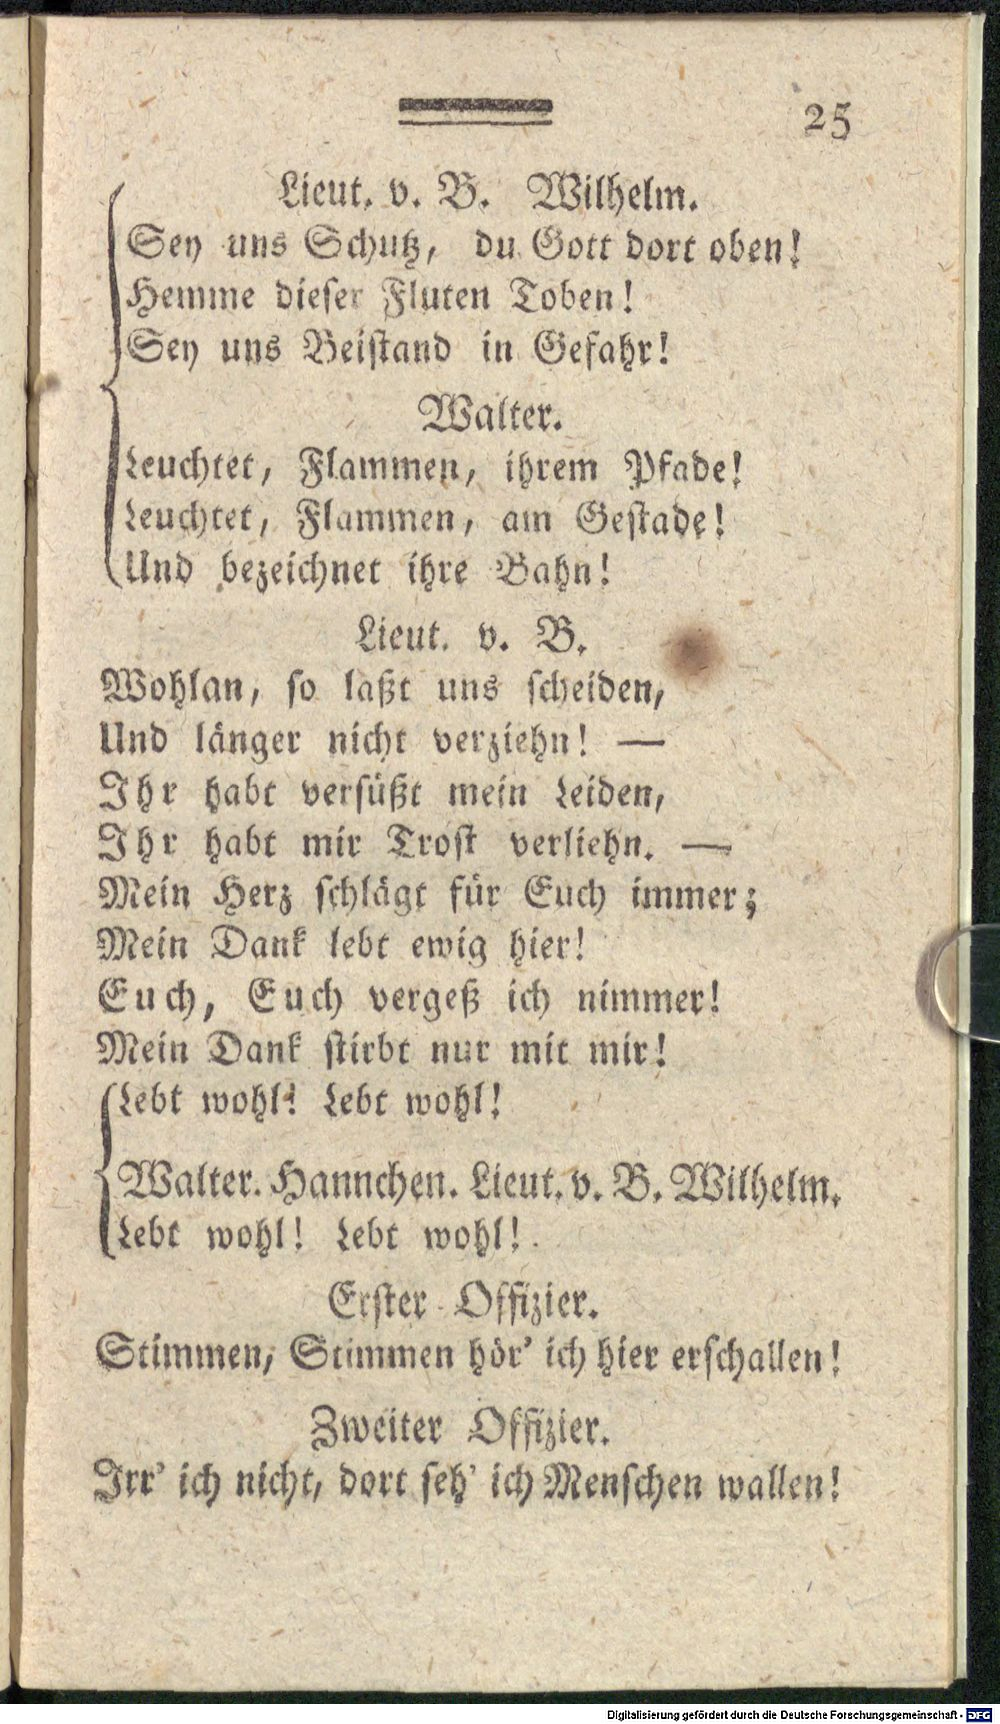 25
Lieut. v. B. Wilhelm.
Sey uns Schutz, du Gott dort oben!
Hemme dieser Fluten Toben!
Sey uns Beistand in Gefahr!
Walter.
Leuchtet, Flammen, ihrem Pfade!
Leuchtet, Flammen, am Gestade!
Und bezeichnet ihre Bahn!
Lieut. v. B.
Wohlan, so laßt uns scheiden,
Und länger nicht verziehn! —
Ihr habt versüßt mein Leiden,
Ihr habt mir Trost verliehn. —
Mein Herz schlägt für Euch immer;
Mein Dank lebt ewig hier!
Euch, Euch vergeß ich nimmer!
Mein Dank stirbt nur mit mir!
Lebt wohl! Lebt wohl!
Walter. Hannchen. Lieut. v. B. Wilhelm.
Lebt wohl! Lebt wohl!
Erster Offizier.
Stimmen, Stimmen hör' ich hier erschallen!
Zweiter Offizier.
Irr' ich nicht, dort seh' ich Menschen wallen!
Digitalisierung gefördert durch die Deutsche Forschungsgemeinschaft - DFG